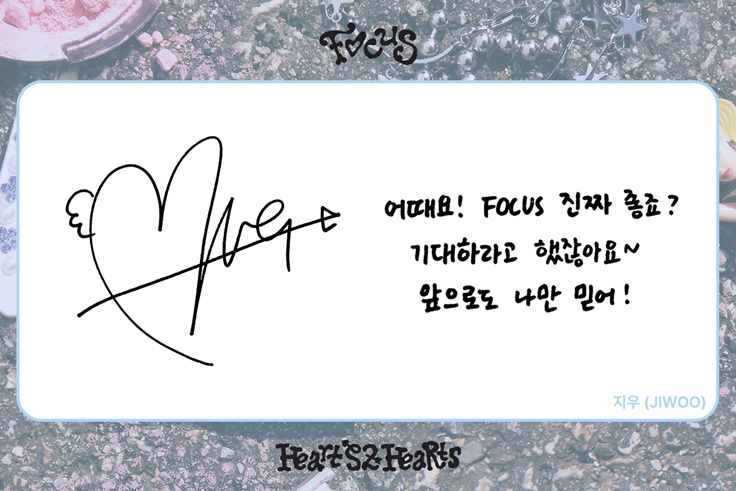 FOCUS
어때요! FOCUS 진짜 좋죠?
기대하라고 했잖아요~
앞으로도 나만 믿어!
지우 (JIWOO)
Hearts2Hearts